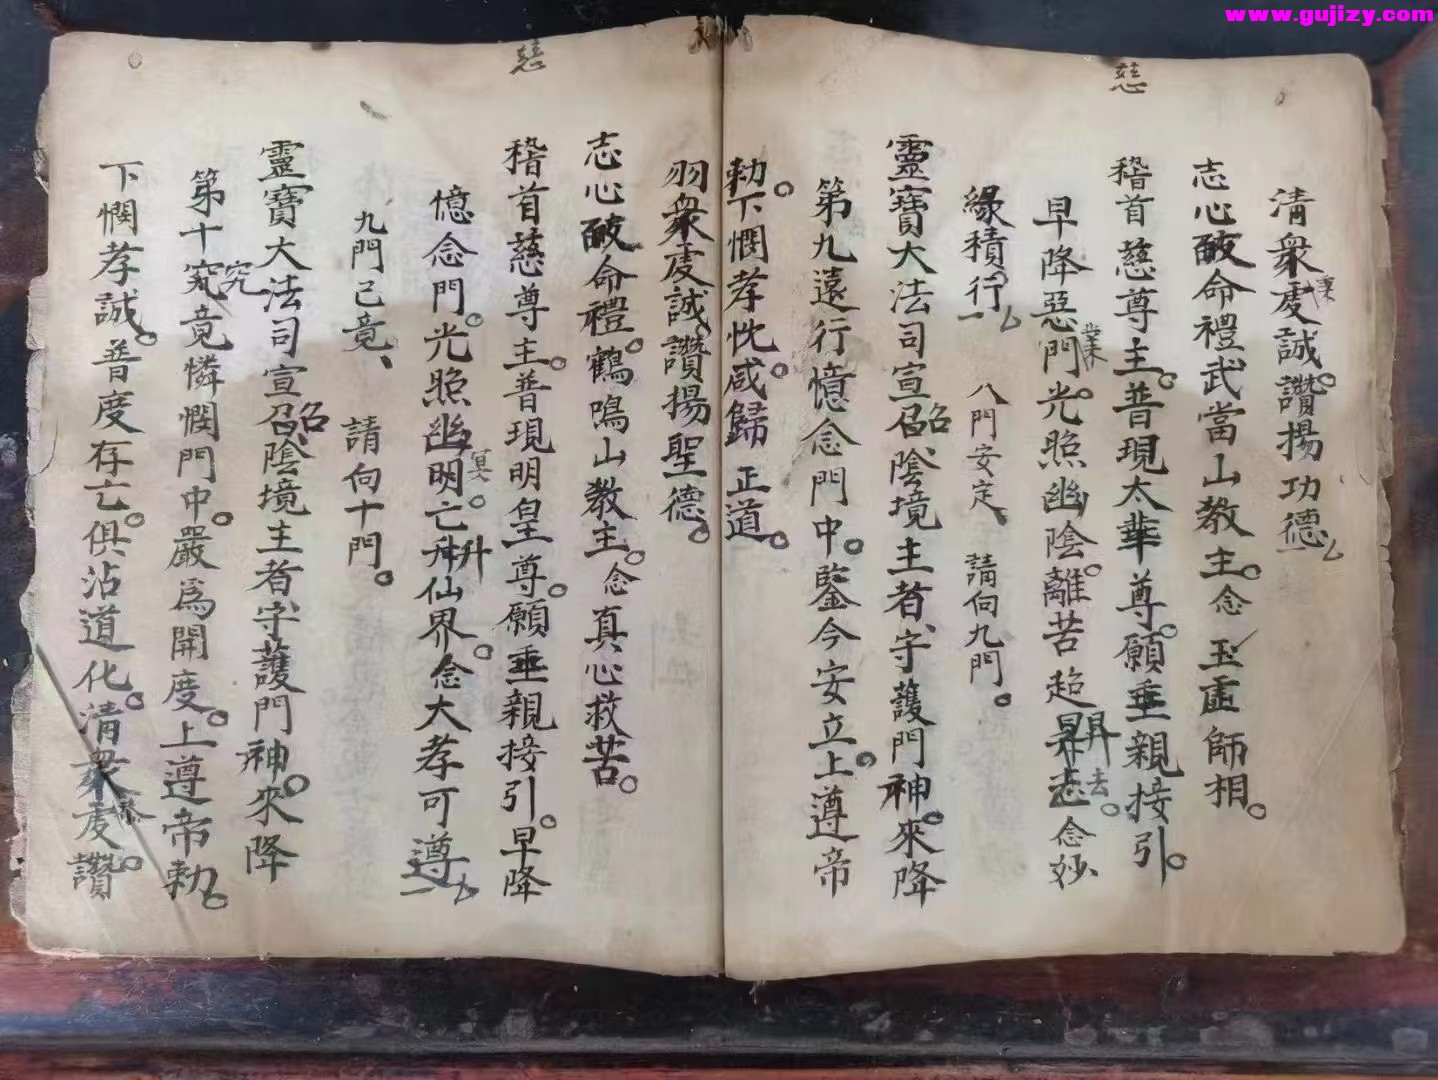 www.gujizy.com
慈
清衆虔誠。讚揚功德。
志心皈命禮武當山教主。念玉虛師相。
稽首慈尊主。普現太華尊。願垂親接引。
早降惡門。光照幽陰。離苦超昇去。念妙
業
緣積行。 八門安定、 請向九門。
靈寶大法司宣召、陰境主者、守護門神。來降
召
第九遠行憶念門中。鑒今安立。上遵帝
勑。下憫孝忱。咸歸正道。
慈
羽衆虔誠。讚揚聖德。
志心皈命禮。鶴鳴山教主。念真心救苦。
稽首慈尊主。普現明皇尊。願垂親接引。早降
憶念門。光照幽明。亡升仙界。念大孝可遵。
冥
升
九門已竟、 請向十門。
靈寶大法司宣召、陰境主者守護門神。來降
召
第十究竟憐憫門中。嚴為開度。上遵帝勑。
究
下憫孝誠。普度存亡。俱沾道化。清衆虔讚。